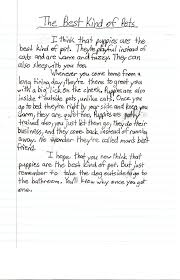 The Best Kind of Pets
I think that puppies are the
best kind of pet. They're playful instead of
cats and are warm and fuzzy. They can
also sleep with you too.
Whenever you come home from a
long tiring day, they're there to greet you
with a big lick on the cheek. Puppies are also
inside + outside pets, unlike cats. Once you
go to bed they're right by your side and keep you
warm, they are quiet too. Puppies are potty
trained also, you just let them go, they do their
business, and they come back instead of running
away. No wonder they're called man's best
friend.
I hope that you now think that
puppies are the best kind of pet. But just
remember to take the dog outside to go to
the bathroom. You'll know why once you get
one.